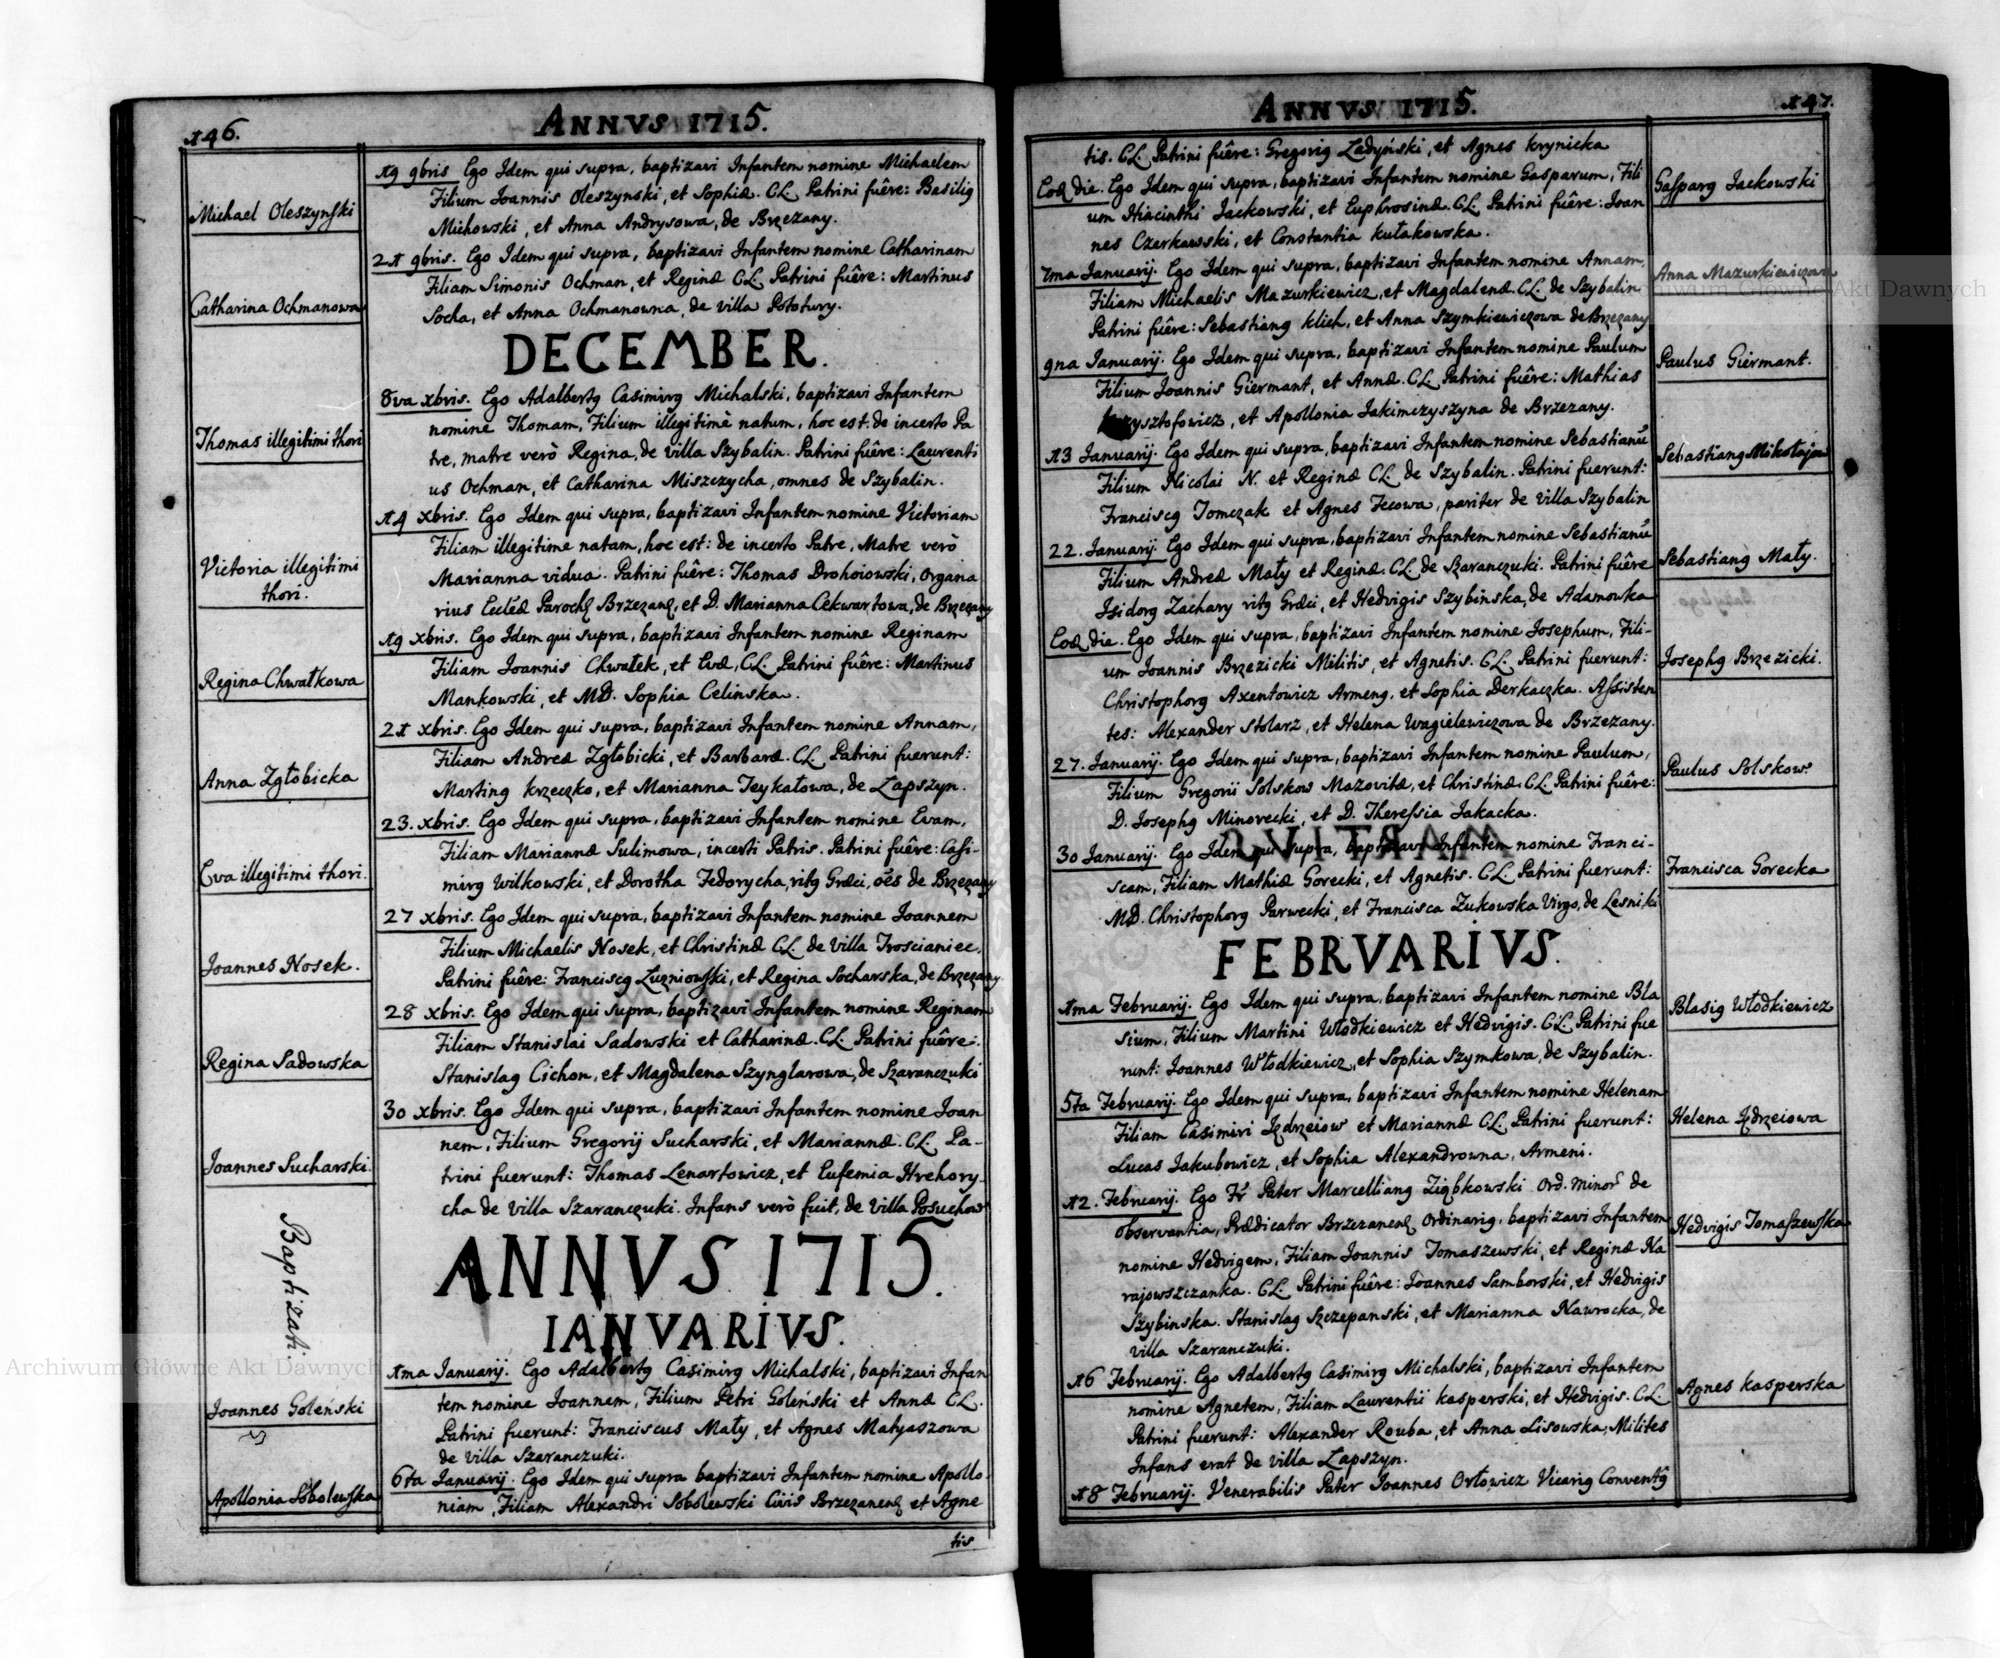 146.
ANNVS 1715.
Michael Oleszynski
19 9bris Ego Idem qui supra, baptizavi Infantem nomine Michaelem
Filium Joannis Oleszynski, et Sophiæ. CL. Patrini fuêre: Basilig
Michowski, et Anna Andrysowa, de Brzezany.
Catharina Ochmanowa
21 9bris. Ego Idem qui supra, baptizavi Infantem nomine Catharinam
Filiam Simonis Ochman, et Reginæ CL. Patrini fuêre: Martinus
Socha, et Anna Ochmanowna, de villa Potutury.
DECEMBER.
Thomas illegitimi thori
8va xbris. Ego Adalbertg Casimirg Michalski, baptizavi Infantem
nomine Thomam, Filium illegitimè natum, hoc est: de incerto Pa
tre, matre verò Regina, de villa Szybalin. Patrini fuêre: Laurenti
us Ochman, et Catharina Miszczycha, omnes de Szybalin.
Victoria illegitimi
thori.
14 xbris. Ego Idem qui supra, baptizavi Infantem nomine Victoriam
Filiam illegitime natam, hoc est: de incerto Patre, Matre verò
Marianna vidua. Patrini fuêre: Thomas Drohoiowski, Organa
rius Ecclæ Paroch Brzezan, et D. Marianna Cekwartowa, de Brzezany
Regina Chwałkowa
19 xbris. Ego Idem qui supra, baptizavi Infantem nomine Reginam
Filiam Joannis Chwałek, et Evæ, CL. Patrini fuêre: Martinus
Mankowski, et MD. Sophia Celinska.
Anna Zgłobicka
21 xbris. Ego Idem qui supra, baptizavi Infantem nomine Annam,
Filiam Andreæ Zgłobicki, et Barbaræ. CL. Patrini fuerunt:
Marting Krzeczko, et Marianna Teykałowa, de Łapszyn.
Eva illegitimi thori.
23. xbris. Ego Idem qui supra, baptizavi Infantem nomine Evam,
Filiam Mariannæ Sulimowa, incerti Patris. Patrini fuêre: Casi-
mirg Wilkowski, et Dorotha Fedorycha, ritg Græci, oes de Brzezany
Joannes Nosek.
27 xbris. Ego Idem qui supra, baptizavi Infantem nomine Joannem
Filium Michaelis Nosek, et Christinæ CL. de villa Troscianiec.
Patrini fuêre: Franciscg Luzniowski, et Regina Socharska, de Brzezany
Regina Sadowska
28 xbris. Ego Idem qui supra, baptizavi Infantem nomine Reginam
Filiam Stanislai Sadowski et Catharinæ. CL. Patrini fuêre:
Stanislag Cichon, et Magdalena Szynglarowa, de Szaranczuki
Joannes Sucharski.
30 xbris. Ego Idem qui supra, baptizavi Infantem nomine Joan
nem, Filium Gregorij Sucharski, et Mariannæ. CL. Pa-
trini fuerunt: Thomas Lenartowicz, et Eufemia Hrehory-
cha de villa Szaranczuki. Infans verò fuit, de villa Posuchow
Baptizati.
ANNVS 1715.
IANVARIVS.
Joannes Goleński
1ma Januarij. Ego Adalbertg Casimirg Michalski, baptizavi Infan
tem nomine Joannem, Filium Petri Goleński et Annæ CL.
Patrini fuerunt: Franciscus Mały, et Agnes Matyaszowa
de villa Szaranczuki.
Apollonia Sobolewska
6ta Januarij. Ego Idem qui supra baptizavi Infantem nomine Apollo-
niam, Filiam Alexandri Sobolewski Civis Brzezanen et Agne
tis
ANNVS 1715.
147.
tis. CL. Patrini fuêre: Gregorig Ladyński, et Agnes Krynicka
Eoæ die. Ego Idem qui supra, baptizavi Infantem nomine Gasparum, Fili
um Hiacinthi Jackowski, et Euphrosinæ. CL. Patrini fuêre: Joan
nes Czerkawski, et Constantia Kułakowska.
Gasparg Jackowski
7ma Januarij. Ego Idem qui supra, baptizavi Infantem nomine Annam,
Filiam Michaelis Mazurkiewicz, et Magdalenæ CL. de Szybalin
Patrini fuêre: Sebastiang Klich, et Anna Szymkiewiczowa de Brzezany
Anna Mazurkiewiczow
9na Januarij. Ego Idem qui supra, baptizavi Infantem nomine Paulum
Filium Joannis Giermant, et Annæ. CL. Patrini fuêre: Mathias
Krzysztofowicz, et Apollonia Jakimczyszyna de Brzezany.
Paulus Giermant.
13 Januarij. Ego Idem qui supra, baptizavi Infantem nomine Sebastianũ
Filium Nicolai N. et Reginæ CL. de Szybalin. Patrini fuerunt:
Franciscg Tomczak et Agnes Fecowa, pariter de villa Szybalin
Sebastiang Mikołajow
22. Januarij. Ego Idem qui supra, baptizavi Infantem nomine Sebastianũ
Filium Andreæ Mały et Reginæ. CL. de Szaranczuki. Patrini fuêre
Isidorg Zachary ritg Græci, et Hedvigis Szybinska, de Adamowka
Sebastiang Mały.
Eoæ die. Ego Idem qui supra, baptizavi Infantem nomine Josephum, Fili-
um Joannis Brzezicki Militis, et Agnetis. CL. Patrini fuerunt:
Christophorg Axentowicz Armeng, et Sophia Derkaczka. Assisten
tes: Alexander Stolarz, et Helena Wagielewiczowa de Brzezany.
Josephg Brzezicki.
27. Januarij. Ego Idem qui supra, baptizavi Infantem nomine Paulum,
Filium Gregorii Solskow Mazovitæ, et Christinæ. CL. Patrini fuêre:
D. Josephg Minovecki, et D. Theressia Jakacka.
Paulus Solskow.
30 Januarij. Ego Idem qui supra, baptizavi Infantem nomine Franci-
scam, Filiam Mathiæ Gorecki, et Agnetis. CL. Patrini fuerunt:
MD. Christophorg Parwecki, et Francisca Zukowska Virgo, de Lesniki
Francisca Gorecka
FEBRVARIVS.
1ma Februarij. Ego Idem qui supra, baptizavi Infantem nomine Bla
sium, Filium Martini Włodkiewicz et Hedvigis. CL. Patrini fue
runt: Joannes Włodkiewicz, et Sophia Szymkowa, de Szybalin.
Blasig Włodkiewicz
5ta Februarij. Ego Idem qui supra, baptizavi Infantem nomine Helenam
Filiam Casimiri Jędrzeiow et Mariannæ CL. Patrini fuerunt:
Lucas Jakubowicz, et Sophia Alexandrowna, Armeni.
Helena Jędrzeiowa
12. Februarij. Ego Fr Pater Marcelliang Ziąbkowski Ord. Minor de
observantia, Prædicator Brzezanen Ordinarig, baptizavi Infantem
nomine Hedvigem, Filiam Joannis Tomaszewski, et Reginæ Na
rajowszczanka. CL. Patrini fuêre: Joannes Samborski, et Hedvigis
Szybinska. Stanislag Szczepanski, et Marianna Nawrocka, de
villa Szaranczuki.
Hedvigis Tomaszewska
16 Februarij. Ego Adalbertg Casimirg Michalski, baptizavi Infantem
nomine Agnetem, Filiam Laurentii Kasperski, et Hedvigis. CL.
Patrini fuerunt: Alexander Rouba, et Anna Lisowska, Milites
Infans erat de villa Łapszyn.
Agnes Kasperska
18 Februarij. Venerabilis Pater Joannes Orłowicz Vicarig Conventg
Archiwum Główne Akt Dawnych
Archiwum Główne Akt Dawnych